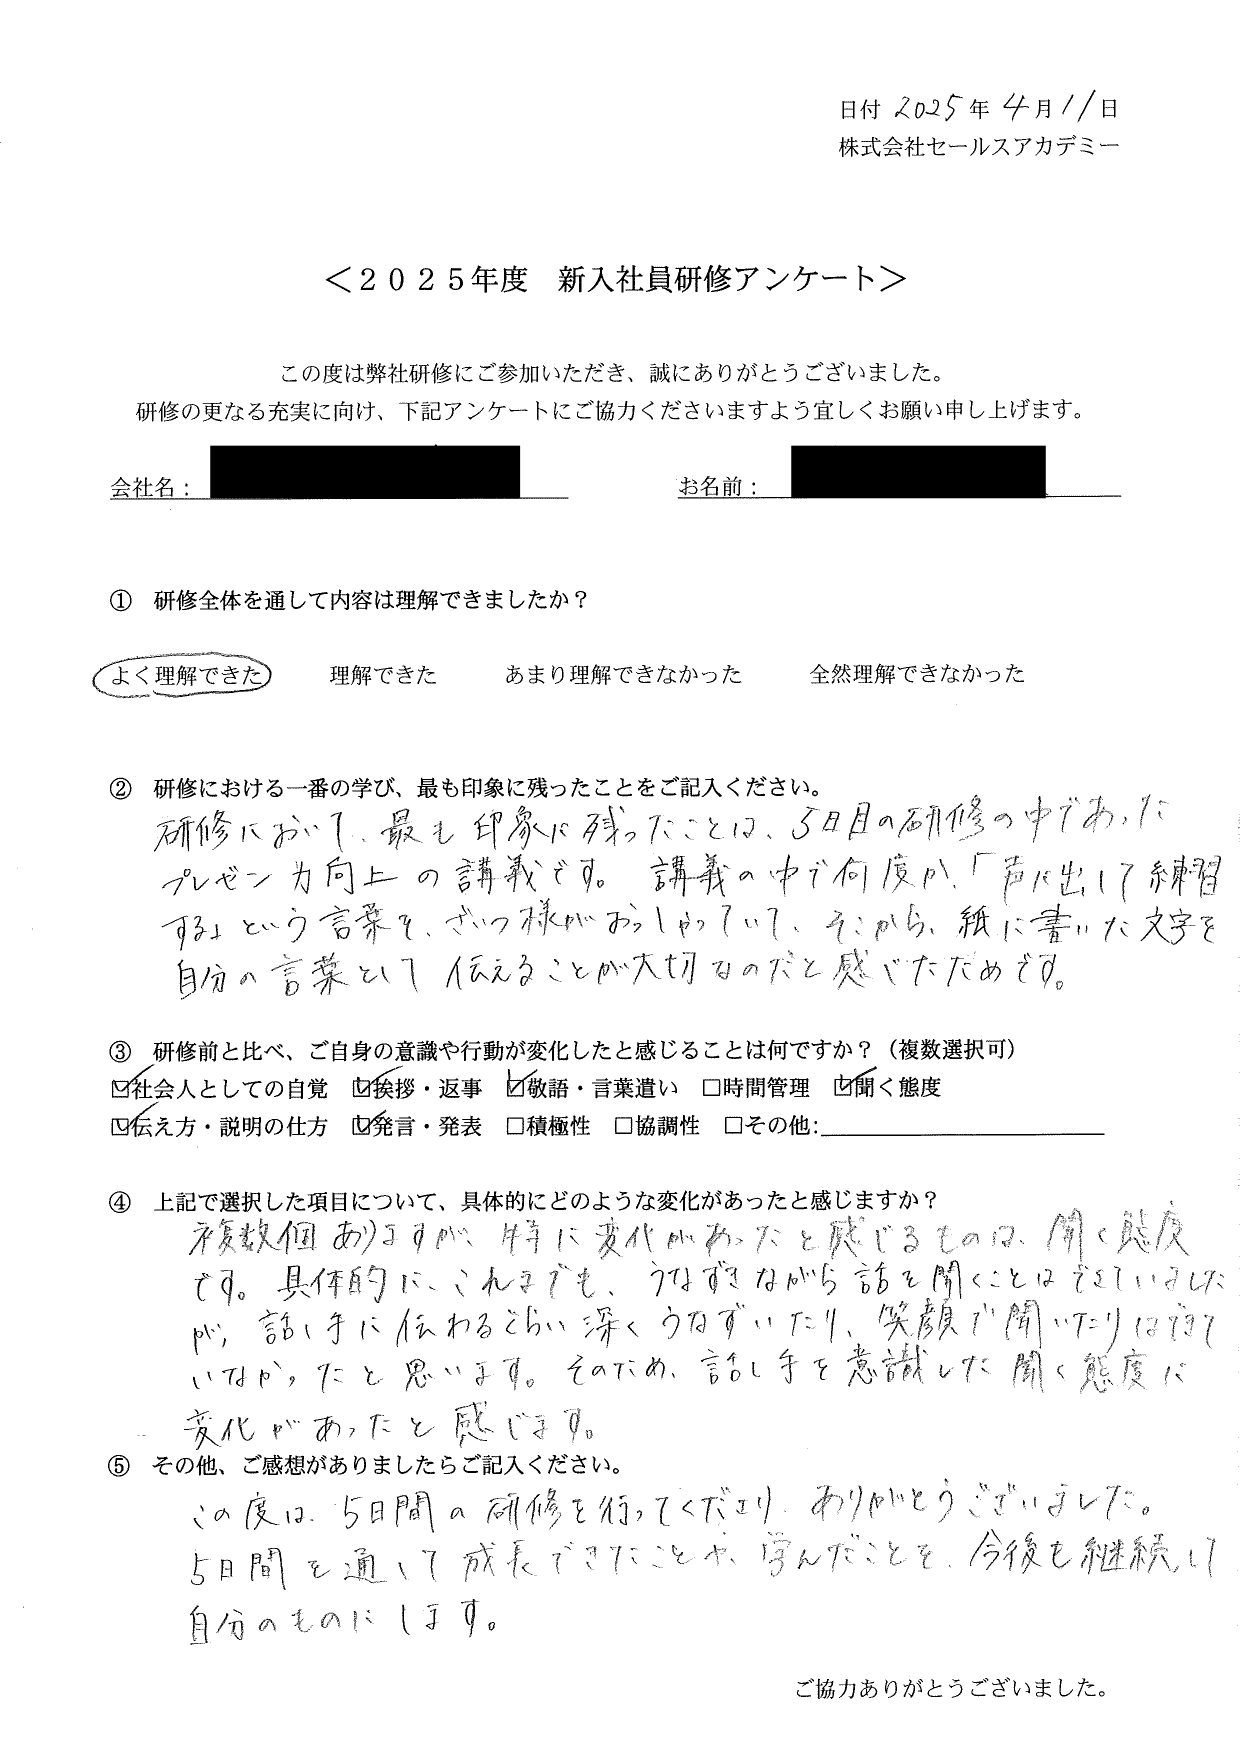 日付 2025年 4月11日
株式会社セールスアカデミー
＜２０２５年度　新入社員研修アンケート＞
この度は弊社研修にご参加いただき、誠にありがとうございました。
研修の更なる充実に向け、下記アンケートにご協力くださいますよう宜しくお願い申し上げます。
会社名：　お名前：
①　研修全体を通して内容は理解できましたか？
よく理解できた　理解できた　あまり理解できなかった　全然理解できなかった
②　研修における一番の学び、最も印象に残ったことをご記入ください。
研修において、最も印象に残ったことは、5日目の研修の中であった
プレゼン力向上の講義です。講義の中で何度か、「声に出して練習
する」という言葉を、ざいつ様がおっしゃっていて、そこから、紙に書いた文字を
自分の言葉として伝えることが大切なのだと感じたためです。
③　研修前と比べ、ご自身の意識や行動が変化したと感じることは何ですか？（複数選択可）
☑社会人としての自覚　☑挨拶・返事　☑敬語・言葉遣い　□時間管理　☑聞く態度
☑伝え方・説明の仕方　☑発言・発表　□積極性　□協調性　□その他:
④　上記で選択した項目について、具体的にどのような変化があったと感じますか？
複数個ありますが、特に変化があったと感じるものは、聞く態度
です。具体的に、これまでも、うなずきながら話を聞くことはできていました
が、話し手に伝わるぐらい深くうなずいたり、笑顔で聞いたりはできて
いなかったと思います。そのため、話し手を意識した聞く態度に
変化があったと感じます。
⑤　その他、ご感想がありましたらご記入ください。
この度は、5日間の研修を行ってくださり、ありがとうございました。
5日間を通して成長できたことや、学んだことを、今後も継続して
自分のものにします。
ご協力ありがとうございました。